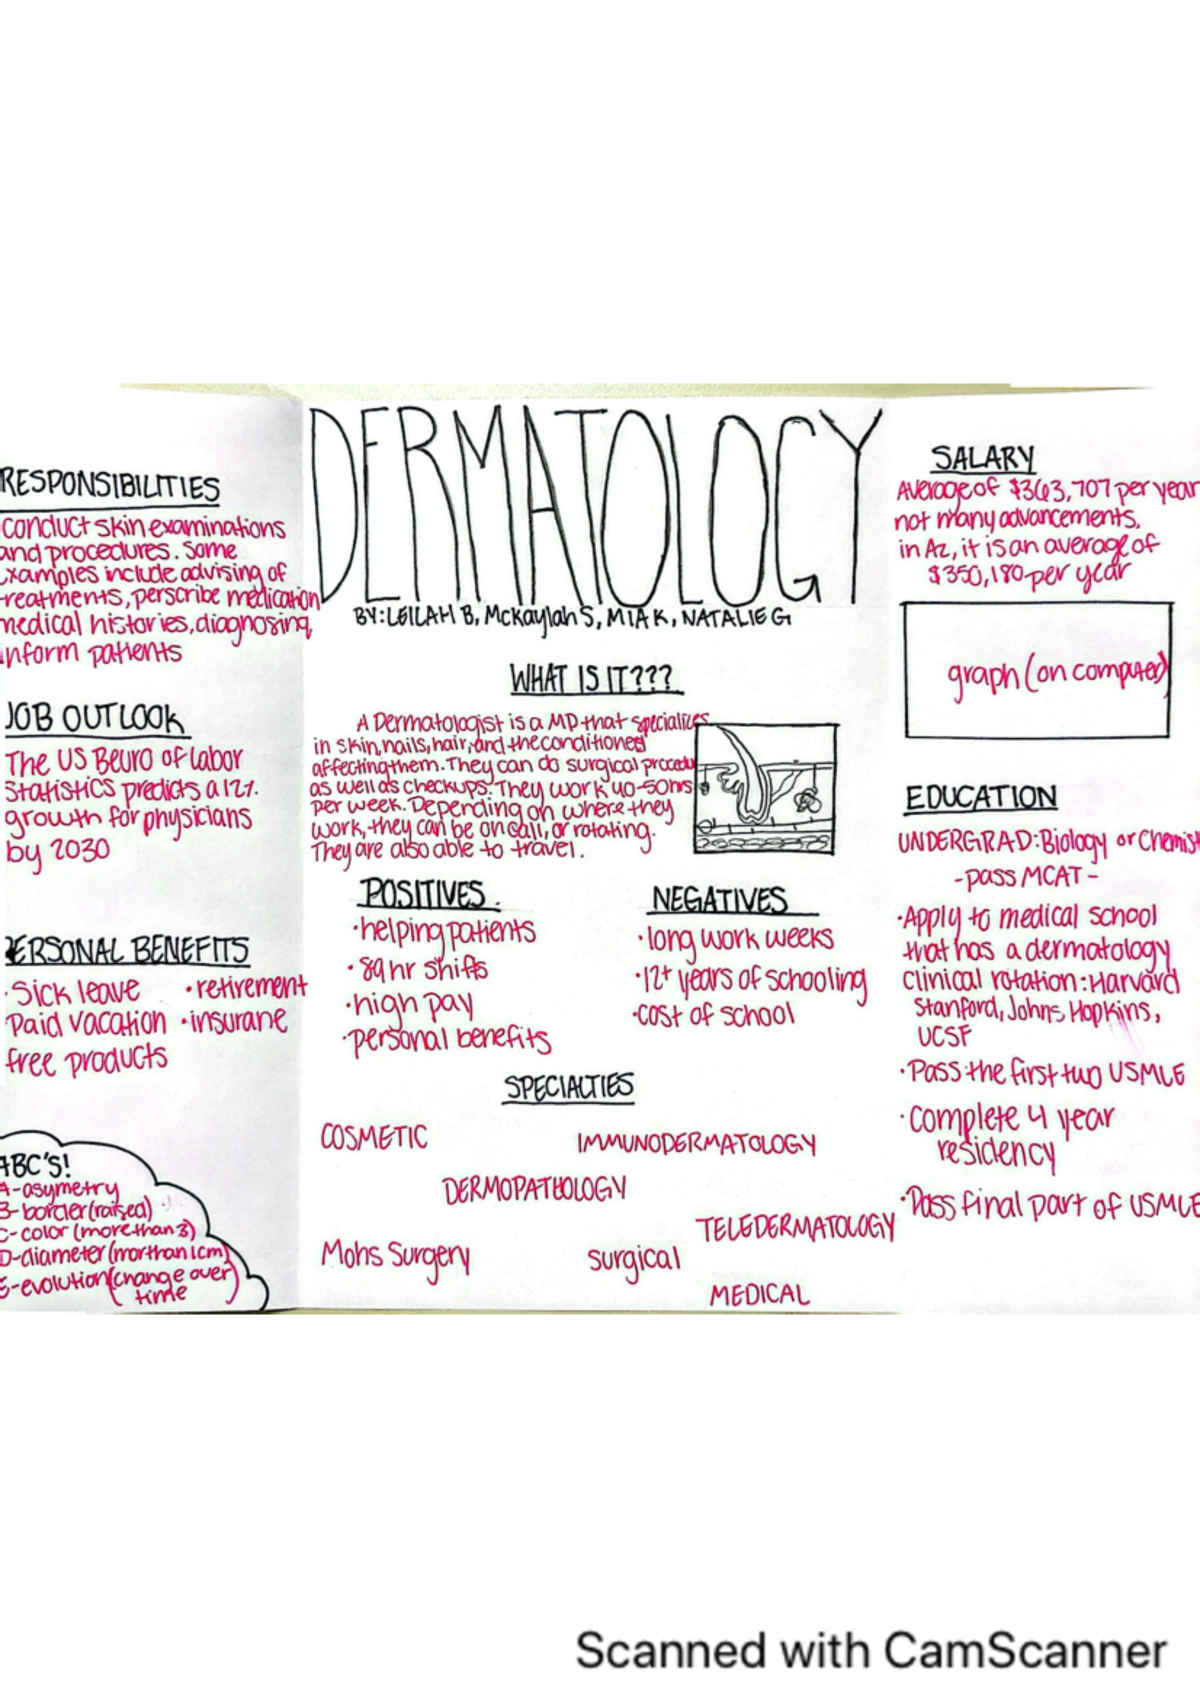 RESPONSIBILITIES
conduct skin examinations
and procedures. Some
examples include advising of
treatments, perscribe medication
medical histories, diagnosing,
inform patients
JOB OUTLOOK
The US Beuro of Labor
Statistics predicts a 12%
growth for physicians
by 2030
PERSONAL BENEFITS
· Sick leave · retirement
Paid vacation · insurane
free products
ABC'S!
A-asymetry
B-border (raised)
C-color (more than 3)
D-diameter (mor than 1cm)
E-evolution (change over
time)
DERMATOLOGY
BY: LEILAH B, McKaylah S, MIA K, NATALIE G
WHAT IS IT???
A Dermatologist is a MD that specializes
in skin, nails, hair, and the conditiones
affecting them. They can do surgical procedu
as well as checkups. They work 40-50hrs
per week. Depending on where they
work, they can be on call, or rotating.
They are also able to travel.
POSITIVES
· helping patients
· 89 hr shifts
· high pay
· personal benefits
NEGATIVES
· long work weeks
· 12+ years of schooling
· cost of school
SPECIALTIES
COSMETIC
IMMUNODERMATOLOGY
DERMOPATHOLOGY
TELEDERMATOLOGY
Mohs Surgery
surgical
MEDICAL
SALARY
Average of $363,707 per year
not many advancements.
in Az, it is an average of
$350,180 per year
graph (on computer)
EDUCATION
UNDERGRAD: Biology or Chemist
- pass MCAT -
· Apply to medical school
that has a dermatology
clinical rotation: Harvard
Stanford, Johns Hopkins,
UCSF
· Pass the first two USMLE
· Complete 4 year
residency
· Pass final part of USMLE
Scanned with CamScanner